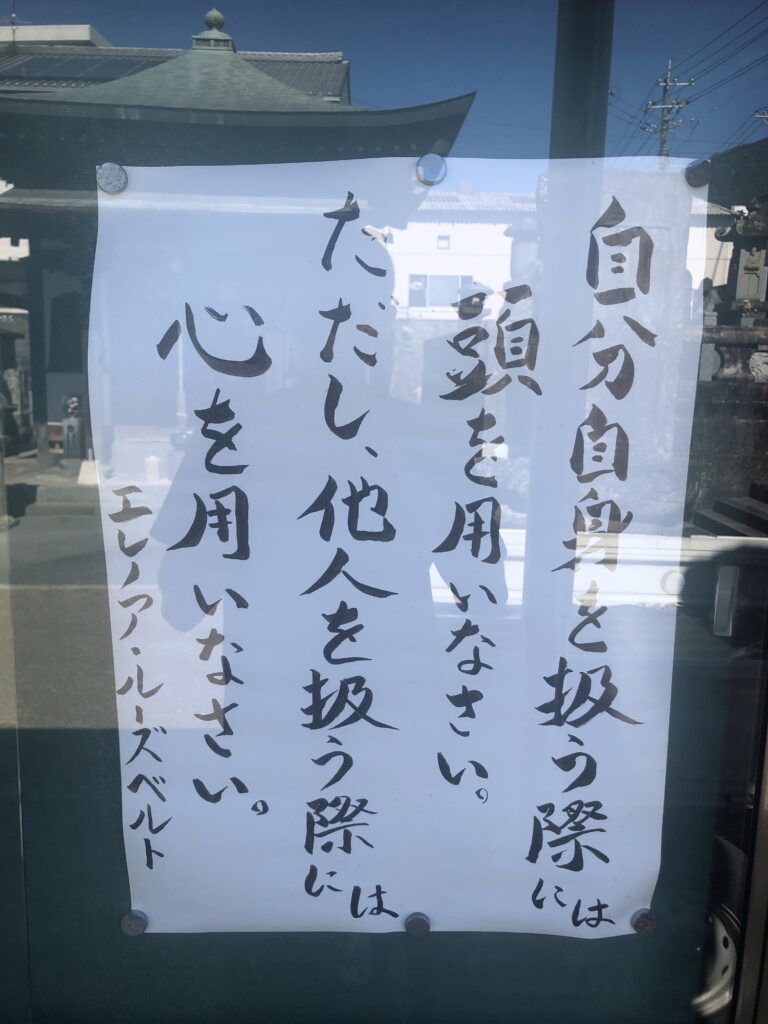 自分自身を扱う際には
頭を用いなさい。
ただし、他人を扱う際には
心を用いなさい。
エレノア・ルーズベルト